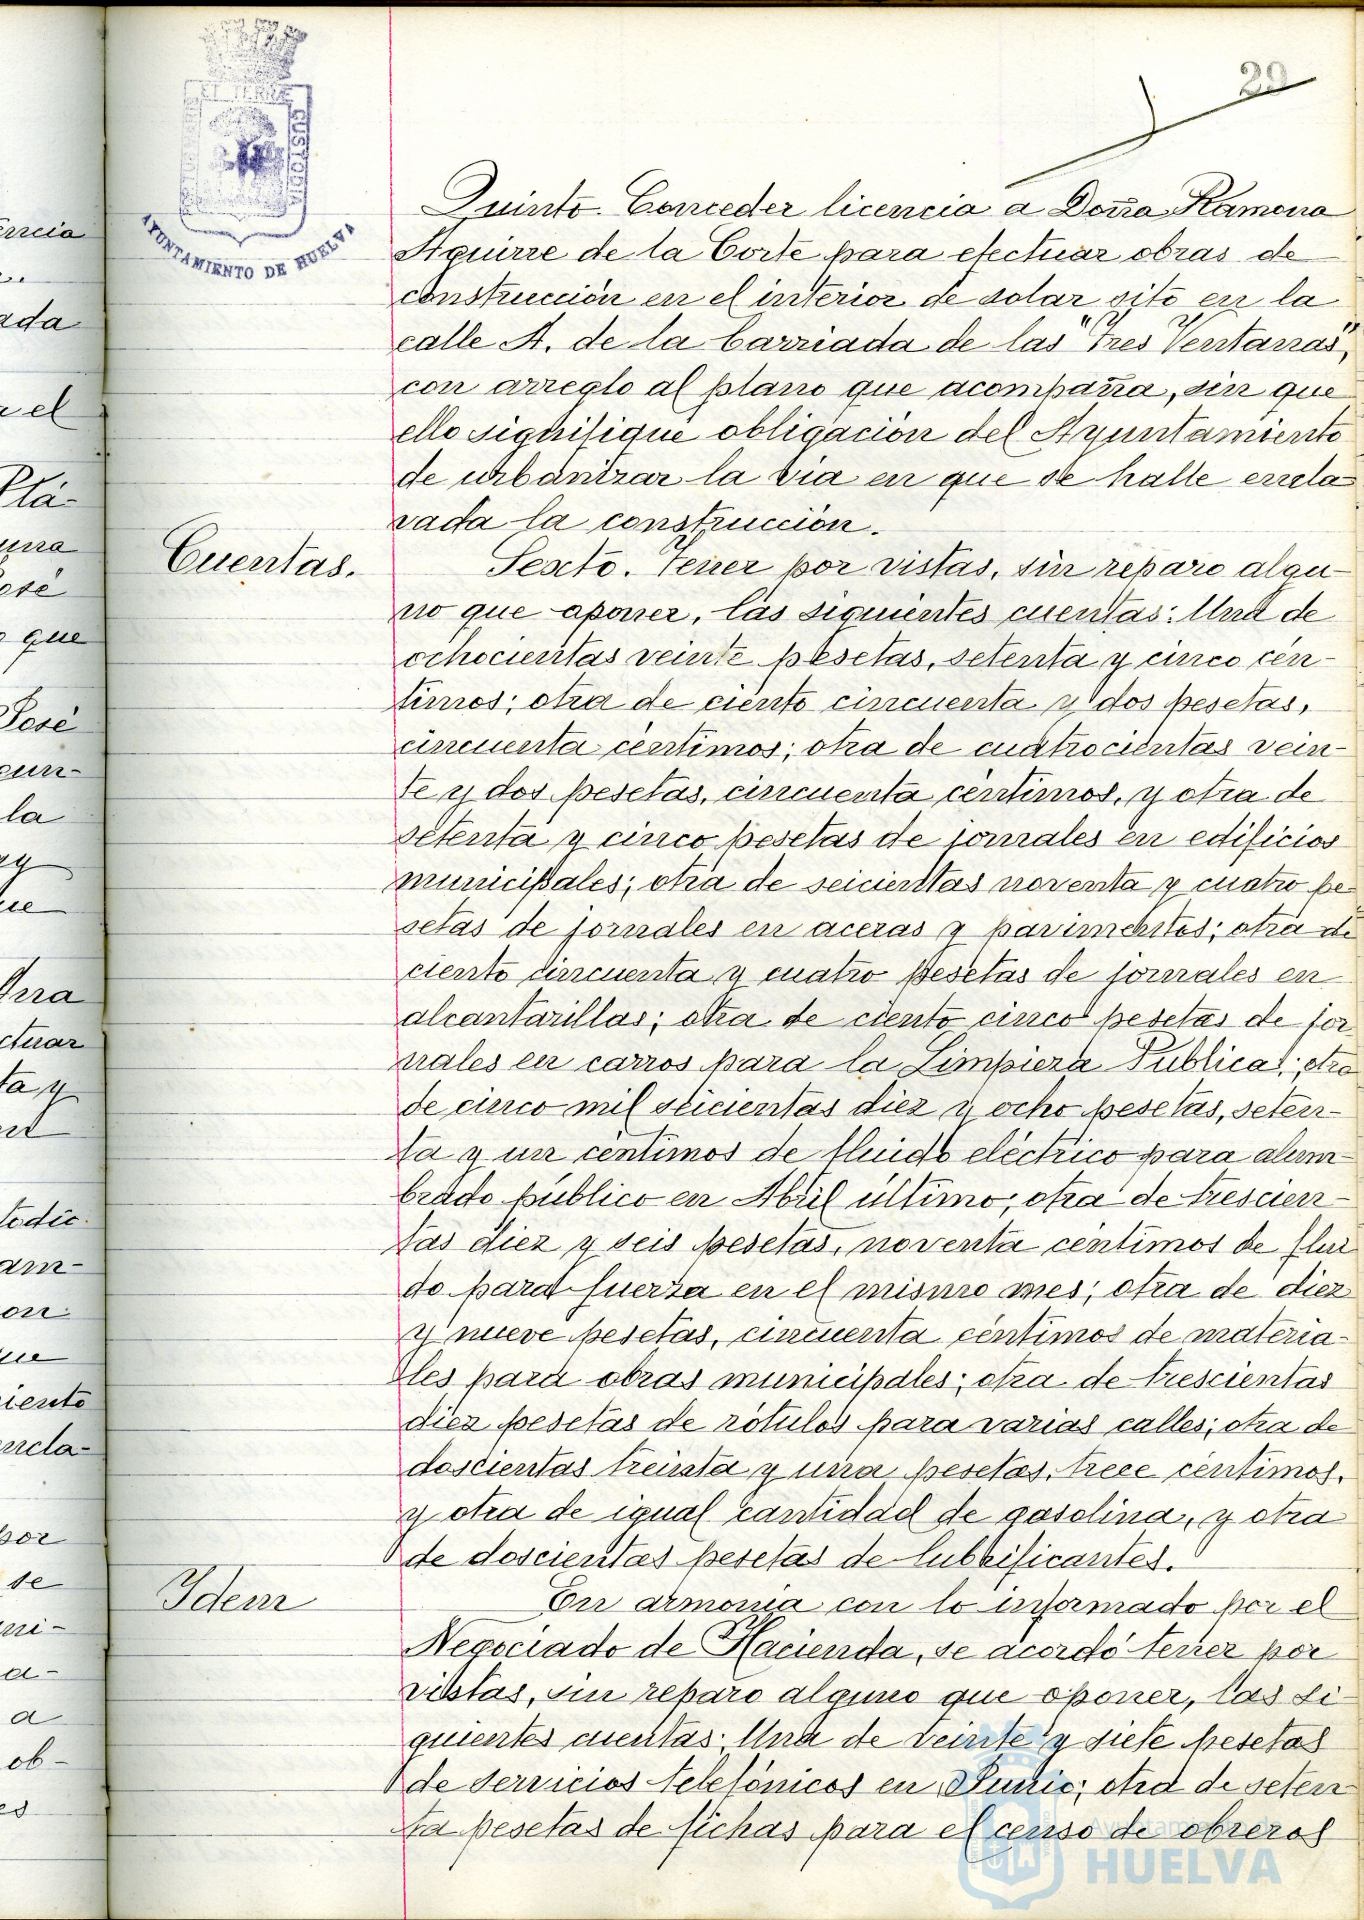 29
ET TERRÆ
CUSTODIA
AYUNTAMIENTO DE HUELVA
Quinto. Conceder licencia a Doña Ramona
Aguirre de la Corte para efectuar obras de
construcción en el interior de solar sito en la
calle A. de la barriada de las "Tres Ventanas",
con arreglo al plano que acompaña, sin que
ello signifique obligación del Ayuntamiento
de urbanizar la via en que se halle encla-
vada la construcción.
Cuentas.
Sexto. Tener por vistas, sin reparo algu-
no que oponer, las siguientes cuentas: Una de
ochocientas veinte pesetas, setenta y cinco cén-
timos; otra de ciento cincuenta y dos pesetas,
cincuenta céntimos; otra de cuatrocientas vein-
te y dos pesetas, cincuenta céntimos, y otra de
setenta y cinco pesetas de jornales en edificios
municipales; otra de seicientas noventa y cuatro pe-
setas de jornales en aceras y pavimentos; otra de
ciento cincuenta y cuatro pesetas de jornales en
alcantarillas; otra de ciento cinco pesetas de jor-
nales en carros para la Limpieza Publica; otra
de cinco mil seicientas diez y ocho pesetas, seten-
ta y un céntimos de fluido eléctrico para alum-
brado público en Abril último; otra de trescien-
tas diez y seis pesetas, noventa céntimos de flui
do para fuerza en el mismo mes; otra de diez
y nueve pesetas, cincuenta céntimos de materia-
les para obras municipales; otra de trescientas
diez pesetas de rótulos para varias calles; otra de
doscientas treinta y una pesetas, trece céntimos,
y otra de igual cantidad de gasolina, y otra
de doscientas pesetas de lubrificantes.
Ydem
En armonia con lo informado por el
Negociado de Hacienda, se acordó tener por
vistas, sin reparo alguno que oponer, las si
guientes cuentas: Una de veinte y siete pesetas
de servicios telefónicos en Junio; otra de seten
ta pesetas de fichas para el censo de obreros
Ayuntamiento de
HUELVA